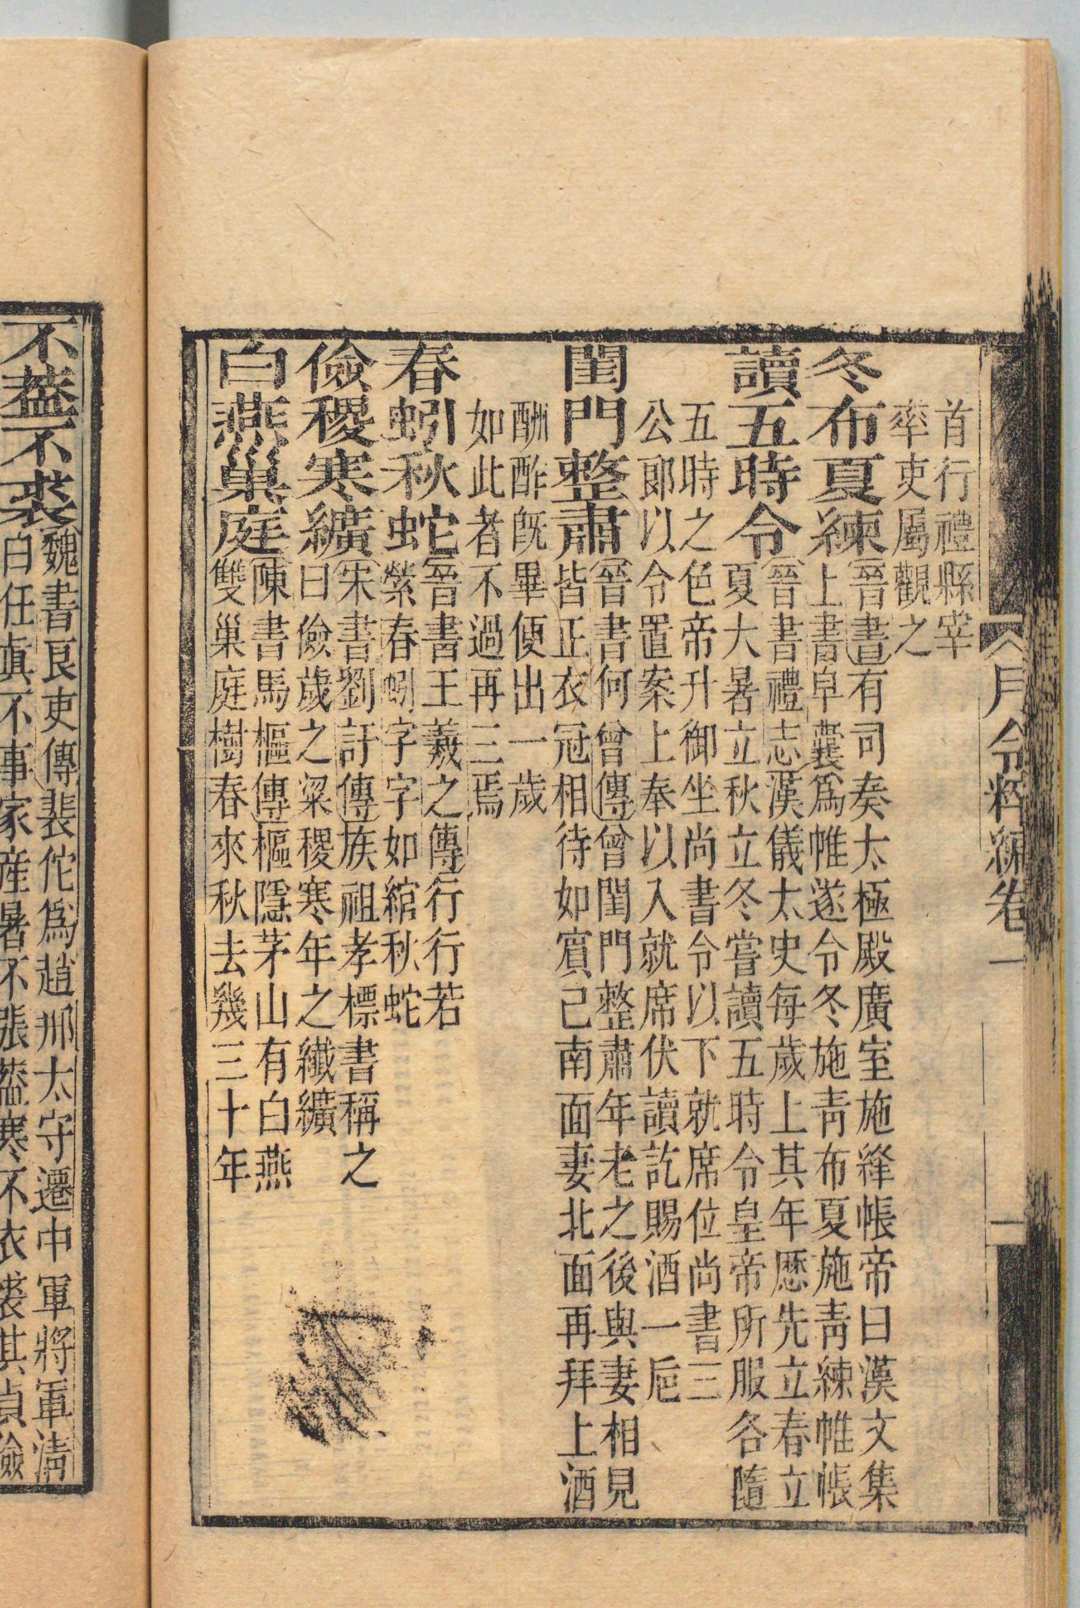 月令粹編卷一
一
首行禮縣宰
率吏屬觀之
冬布夏練
晉書有司奏太極殿廣室施絳帳帝曰漢文集
上書皁囊爲帷遂令冬施靑布夏施靑練帷帳
讀五時令
晉書禮志漢儀太史每歲上其年歷先立春立
夏大暑立秋立冬嘗讀五時令皇帝所服各隨
五時之色帝升御坐尚書令以下就席位尚書三
公郞以令置案上奉以入就席伏讀訖賜酒一巵
閨門整肅
晉書何曾傳曾閨門整肅年老之後與妻相見
皆正衣冠相待如賓己南面妻北面再拜上酒
酬酢旣畢便出一歲
如此者不過再三焉
春蚓秋蛇
晉書王羲之傳行行若
縈春蚓字字如綰秋蛇
儉稷寒纊
宋書劉訏傳族祖孝標書稱之
曰儉歲之粱稷寒年之纖纊
白燕巢庭
陳書馬樞傳樞隱茅山有白燕
雙巢庭樹春來秋去幾三十年
不葢不裘
魏書良吏傳裴佗爲趙郡太守遷中軍將軍淸
白任眞不事家産暑不張葢寒不衣裘其貞儉